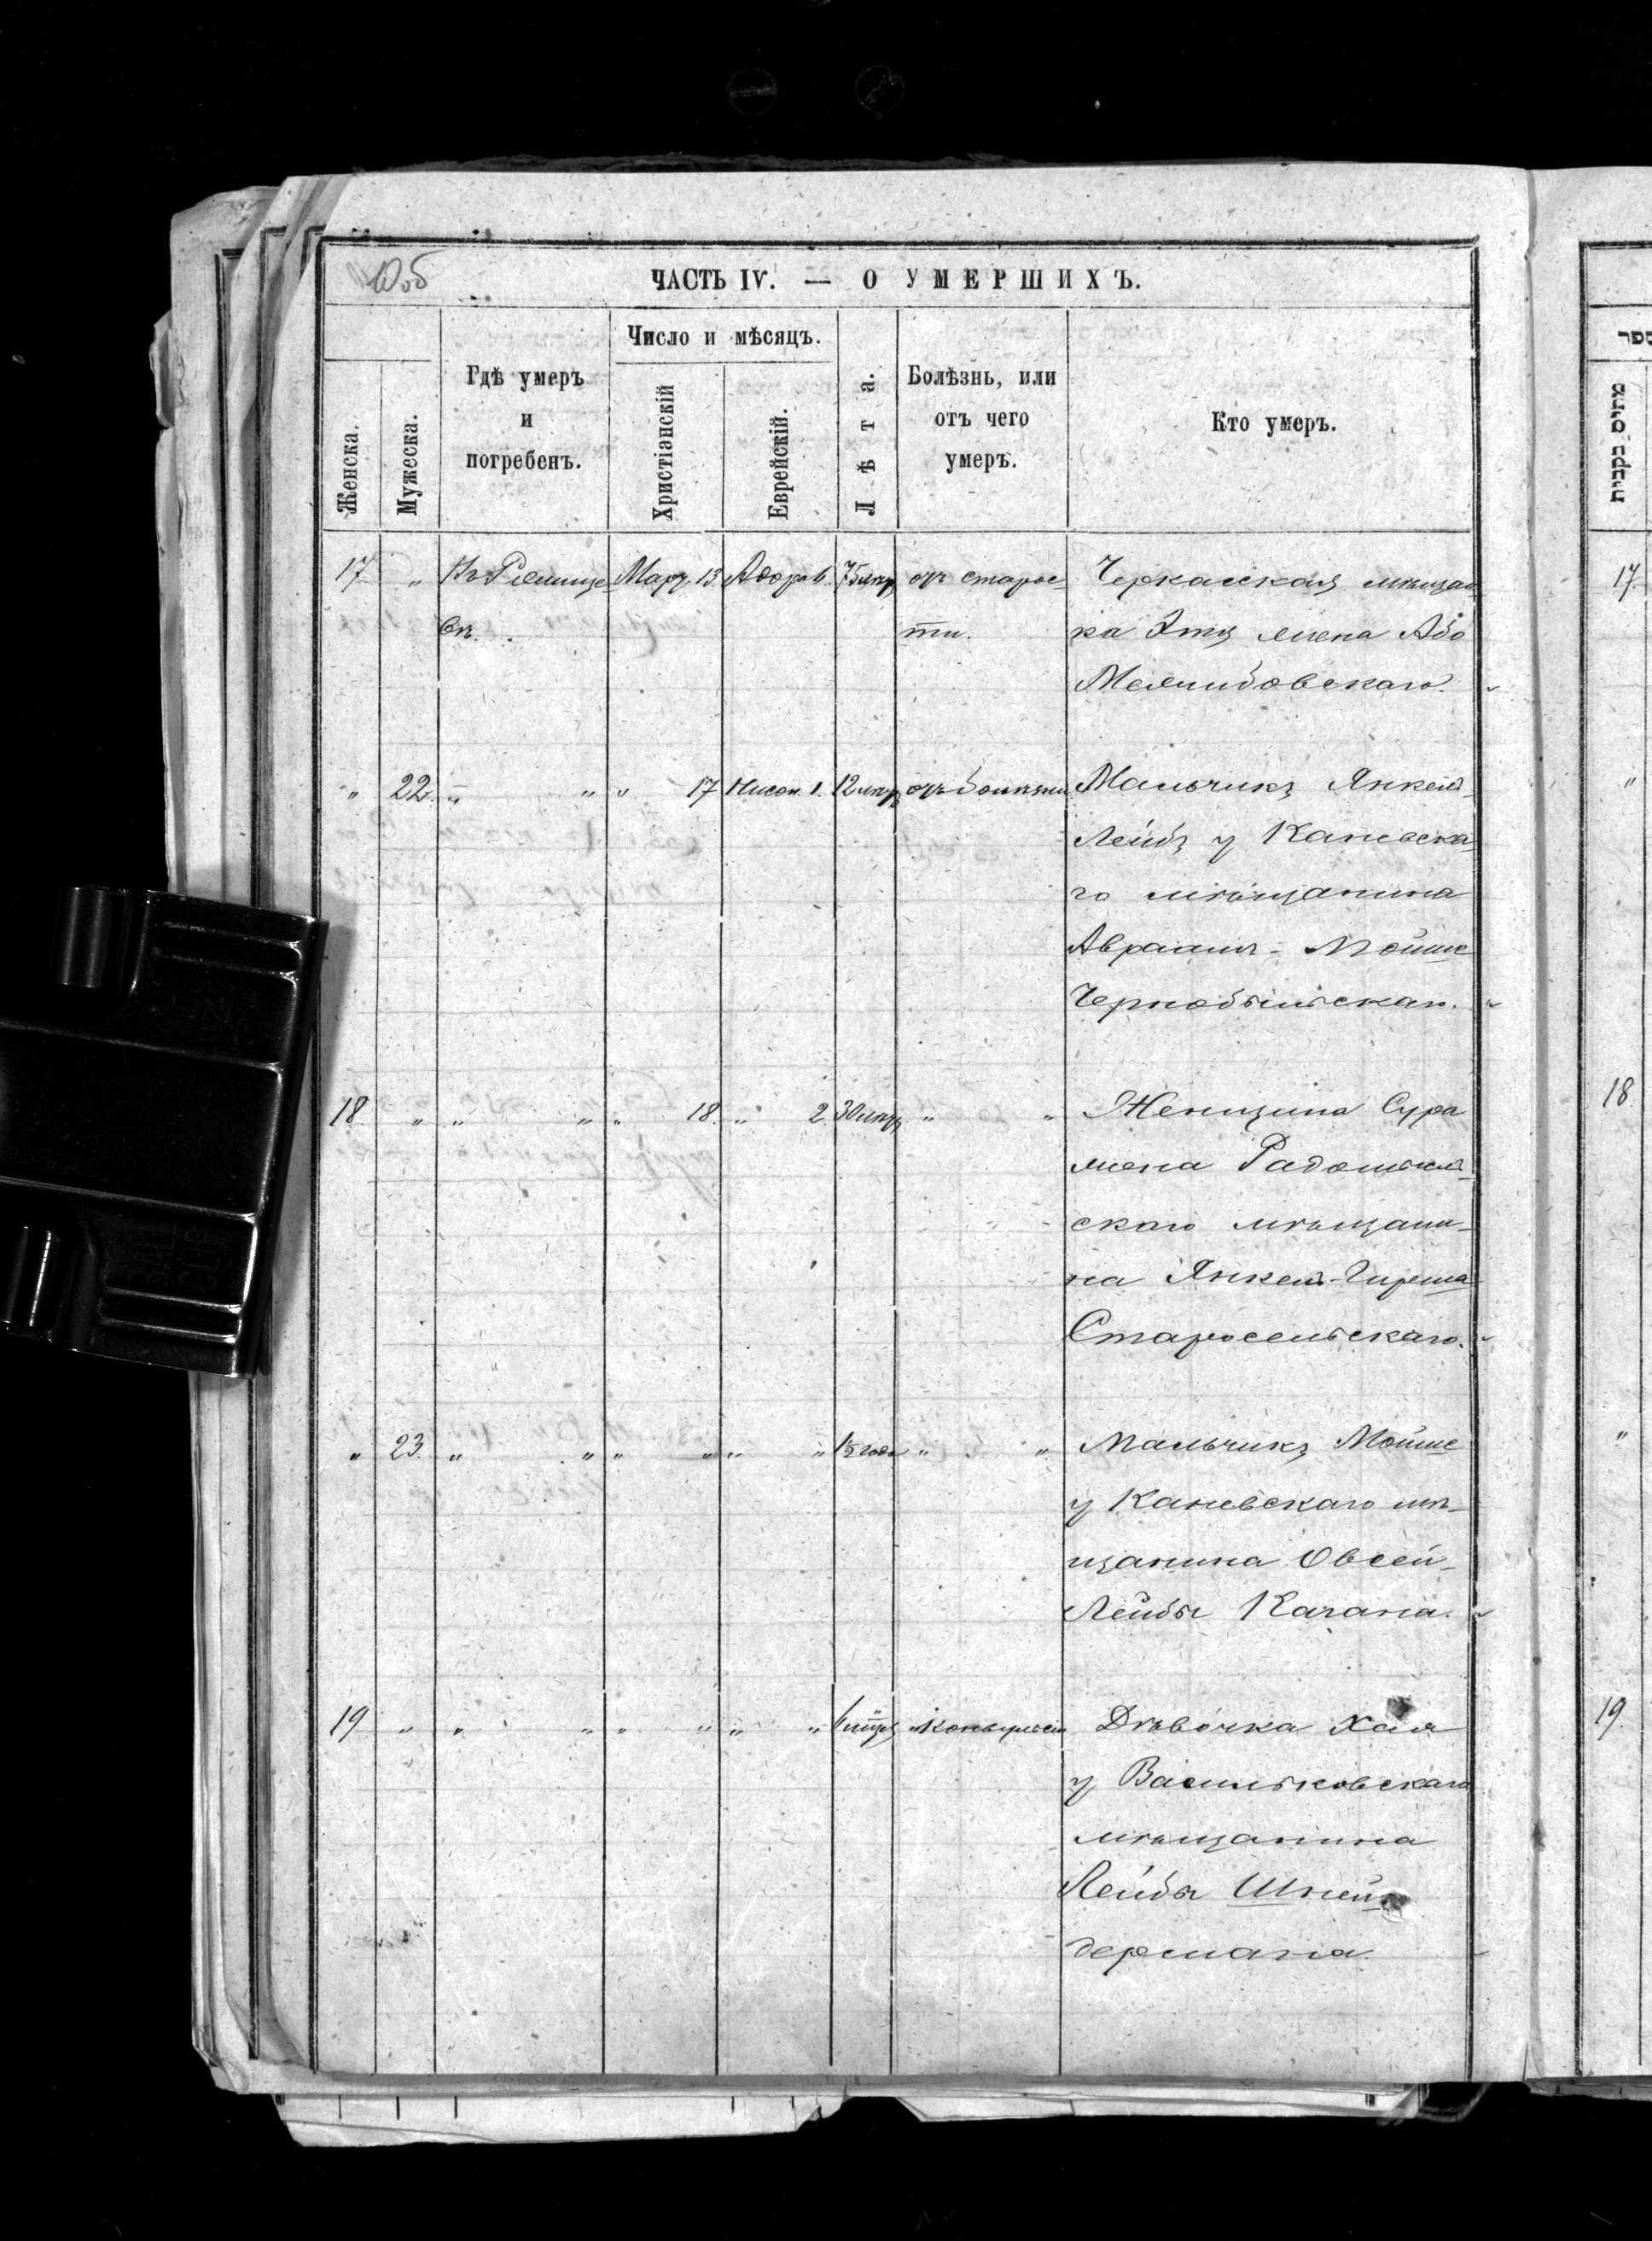 10 об
ЧАСТЬ IV. — О УМЕРШИХЪ.
Женска.
Мужеска.
Гдѣ умеръ
и
погребенъ.
Число и мѣсяцъ.
Христіанскій
Еврейскій.
Лѣта.
Болѣзнь, или
отъ чего
умеръ.
Кто умеръ.
17 " Март. 13 75 лѣтъ отъ старос- Черкасская мѣщан-
въ. ти. ка Этя жена Або
" 22. " " " 17 Нисон. 1. 12 лѣтъ отъ болѣзни Мальчикъ Янкель-
Лейбъ у Каневска-
го мѣщанина
Авраамъ-Мойше
Чернобыльскаго.
18. " " " " 18. " 2. 30 лѣтъ " " Женщина Сура
жена Радомысль-
скаго мѣщани-
на Янкель-Гирша
Старосельскаго.
" 23. " " " " " " 1½ года " " Мальчикъ Мойше
у Каневскаго мѣ-
щанина Овсей-
Лейбы Кагана.
19 " " " " " " " " Дѣвочка Хая
у Васильковскаго
мѣщанина
Лейбы Шней-
дермана.
ספר
מתים נקבות
17.
"
18.
"
19.